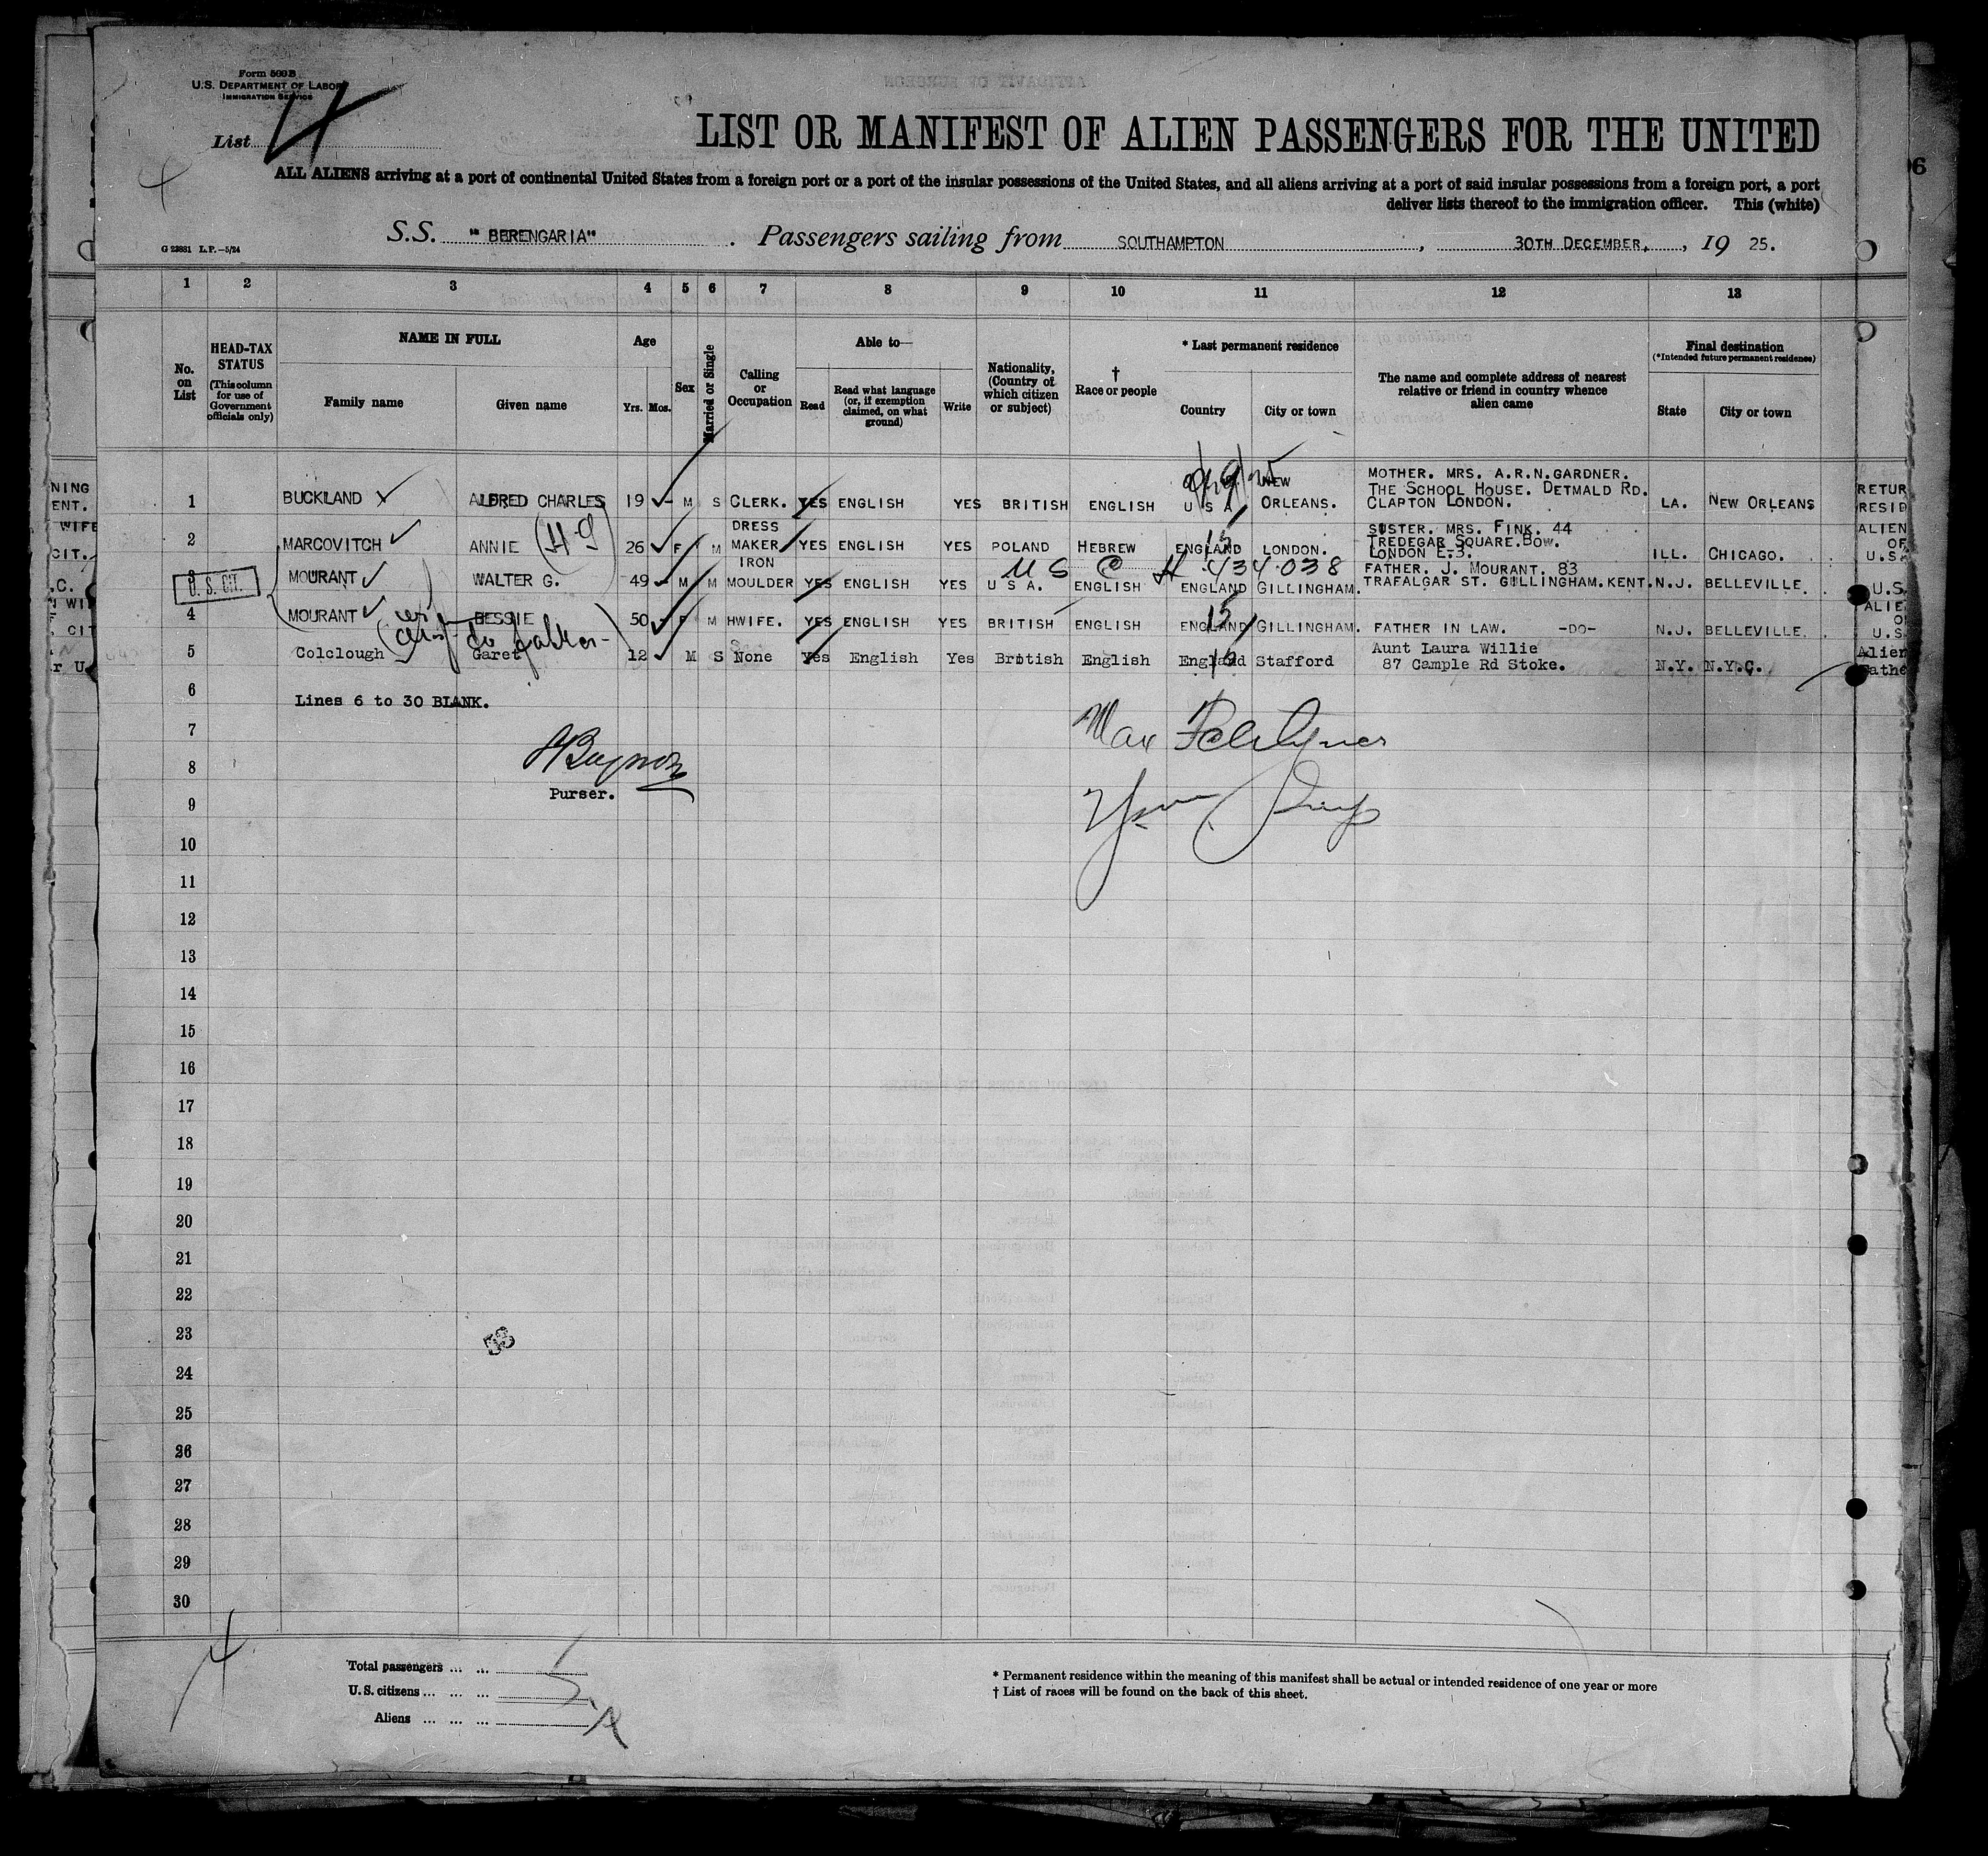 Form 500 B
U.S. DEPARTMENT OF LABOR
IMMIGRATION SERVICE
List 4
LIST OR MANIFEST OF ALIEN PASSENGERS FOR THE UNITED
ALL ALIENS arriving at a port of continental United States from a foreign port or a port of the insular possessions of the United States, and all aliens arriving at a port of said insular possessions from a foreign port, a port
deliver lists thereof to the immigration officer. This (white)
S.S. "BERENGARIA". Passengers sailing from SOUTHAMPTON, 30TH DECEMBER, 19 25.
G 23881 L.P.—5/24
1 2 3 4 5 6 7 8 9 10 11 12 13
No. on List
HEAD-TAX STATUS
(This column for use of Government officials only)
NAME IN FULL
Family name
Given name
Age
Yrs. Mos.
Sex
Married or Single
Calling or Occupation
Able to—
Read
Read what language (or, if exemption claimed, on what ground)
Write
Nationality, (Country of which citizen or subject)
† Race or people
* Last permanent residence
Country
City or town
The name and complete address of nearest relative or friend in country whence alien came
Final destination
(*Intended future permanent residence)
State
City or town
1 BUCKLAND ALDRED CHARLES 19 - M S CLERK. YES ENGLISH YES BRITISH ENGLISH U S A NEW ORLEANS. MOTHER. MRS. A.R.N.GARDNER. THE SCHOOL HOUSE. DETMALD RD. CLAPTON LONDON. LA. NEW ORLEANS
2 MARCOVITCH ANNIE 26 F M DRESS MAKER YES ENGLISH YES POLAND HEBREW ENGLAND LONDON. SUSTER. MRS. FINK. 44 TREDEGAR SQUARE.BOW. LONDON E.3. ILL. CHICAGO.
U S C # 434038
3 U. S. CIT. MOURANT WALTER G. 49 - M M IRON MOULDER YES ENGLISH YES U S A. ENGLISH ENGLAND GILLINGHAM. FATHER. J. MOURANT. 83 TRAFALGAR ST. GILLINGHAM.KENT. N.J. BELLEVILLE.
4 MOURANT BESSIE 50 - F M HWIFE. YES ENGLISH YES BRITISH ENGLISH ENGLAND GILLINGHAM. FATHER IN LAW. -DO- N.J. BELLEVILLE.
5 Colclough Garet 12 M S None Yes English Yes British English England Stafford Aunt Laura Willie 87 Cample Rd Stoke. N.Y. N.Y.C.
6 Lines 6 to 30 BLANK.
7
8
Purser.
9
10
11
12
13
14
15
16
17
18
19
20
21
22
23
24
25
26
27
28
29
30
Total passengers ... ...
U. S. citizens ... ... ...
Aliens ... ... ...
* Permanent residence within the meaning of this manifest shall be actual or intended residence of one year or more
† List of races will be found on the back of this sheet.